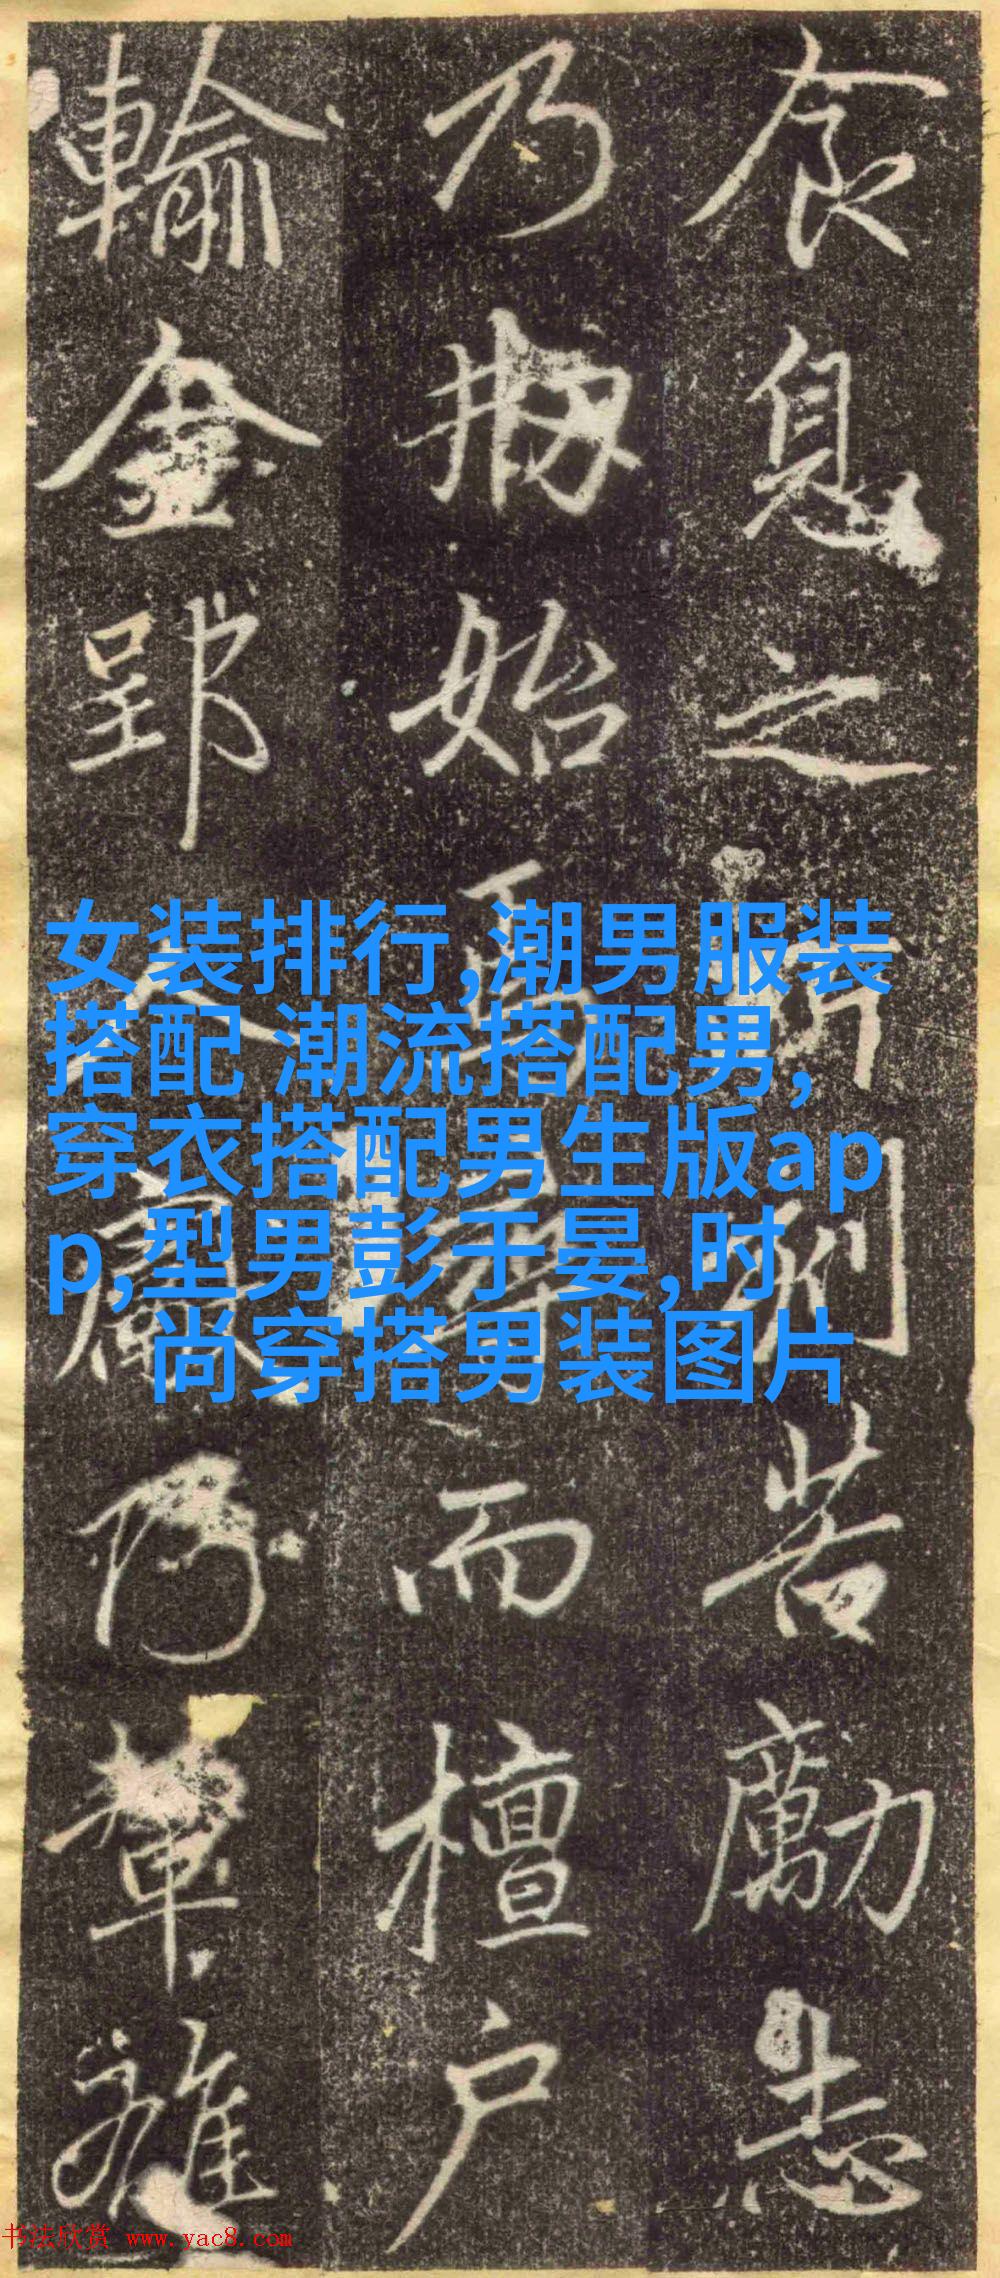 食息之苦勵志
乃始而檀户
輸金郢輦雜
女装排行,潮男服装
搭配 潮流搭配男,
穿衣搭配男生版ap
p,型男彭于晏,时
尚穿搭男装图片
书法欣赏 www.yac8.com